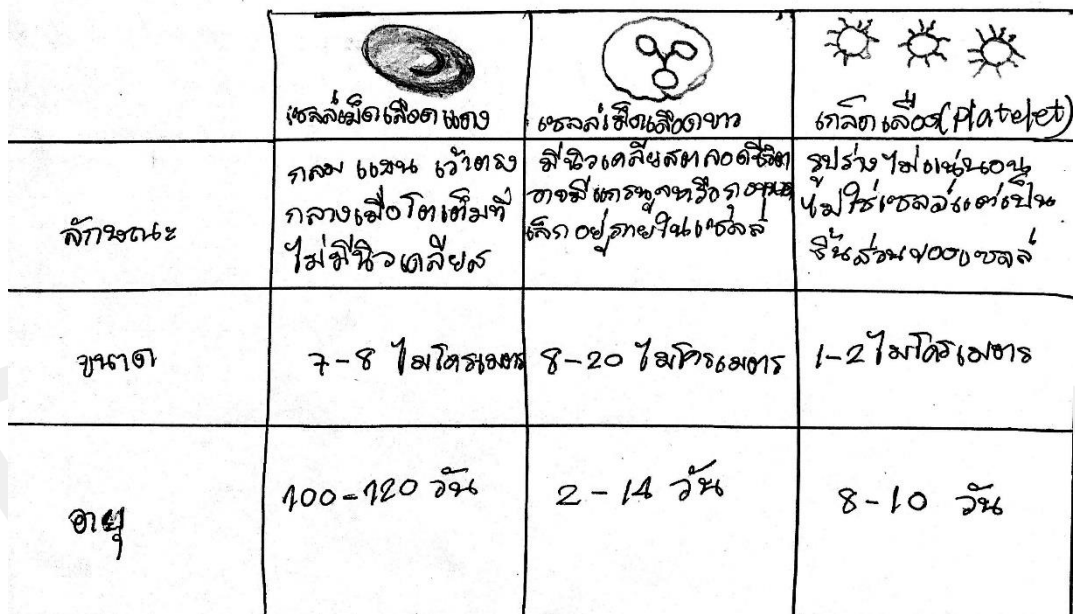 เซลล์เม็ดเลือดแดง
เซลล์เม็ดเลือดขาว
เกล็ดเลือด(Platelet)
ลักษณะ
กลม แบน เว้าตรง
กลางเมื่อโตเต็มที่
ไม่มีนิวเคลียส
มีนิวเคลียสตลอดชีวิต
อาจมีแกรนูลหรือถุง
เล็กอยู่ภายในเซลล์
รูปร่างไม่แน่นอน
ไม่ใช่เซลล์แต่เป็น
ชิ้นส่วนของเซลล์
ขนาด
7-8 ไมโครเมตร
8-20 ไมโครเมตร
1-2 ไมโครเมตร
อายุ
100-120 วัน
2-14 วัน
8-10 วัน